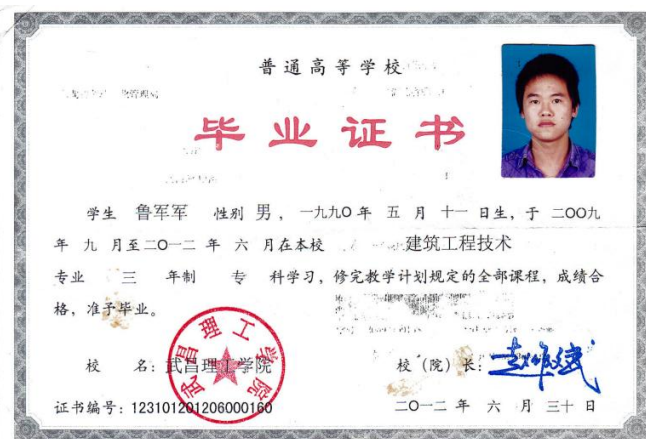 普通高等学校
毕业证书
学生 鲁军军 性别 男，一九九〇年 五 月 十一 日生，于 二〇〇九
年 九 月至二〇一二 年 六 月在本校 建筑工程技术
专业 三 年制 专 科学习，修完教学计划规定的全部课程，成绩合
格，准予毕业。
校 名：武昌理工学院
校（院）长：
证书编号：123101201206000160
二〇一二 年 六 月 三十 日
武昌理工学院